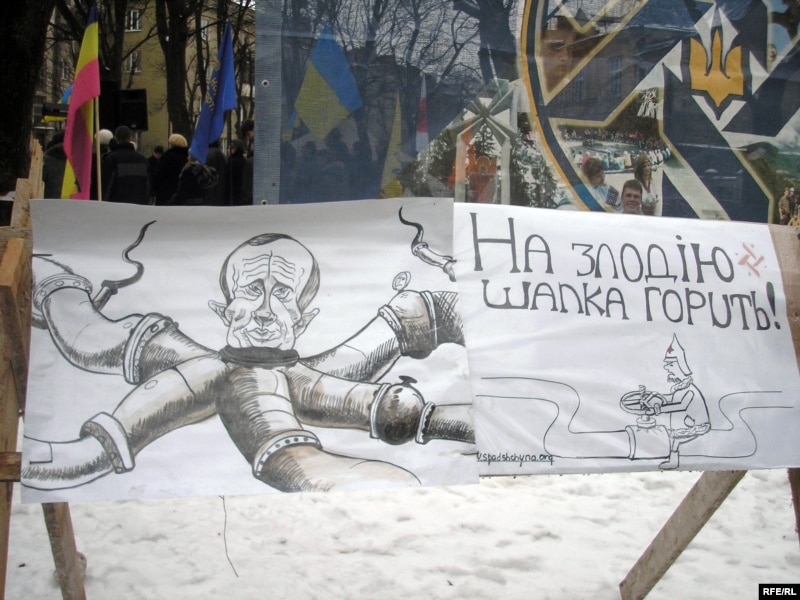 На злодію
шапка горить!
v.spadshchyna.org
RFE/RL